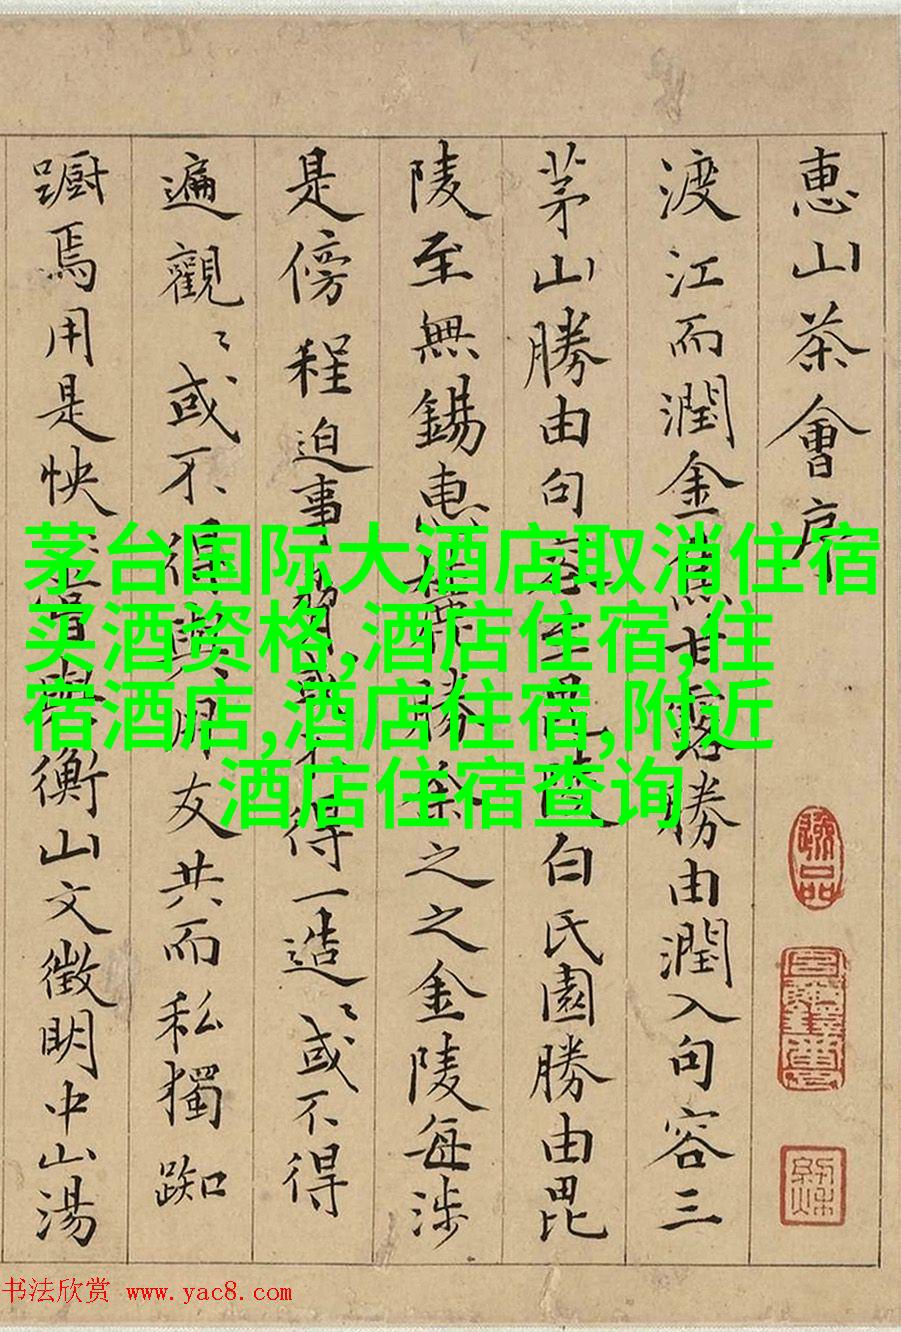 惠山茶會序
渡江而潤金焦甘露勝由潤入句容三
茅山勝由句至毘陵白氏園勝由毘
陵至無錫惠勝余之之金陵每涉
是傍程迫事不得一造〻或不得
遍觀〻或不得與朋友共而私獨踟
蹰焉用是怏嘗與衡山文徵明中山湯
茅台国际大酒店取消住宿
买酒资格,酒店住宿,住
宿酒店,酒店住宿,附近
酒店住宿查询
书法欣赏 www.yac8.com